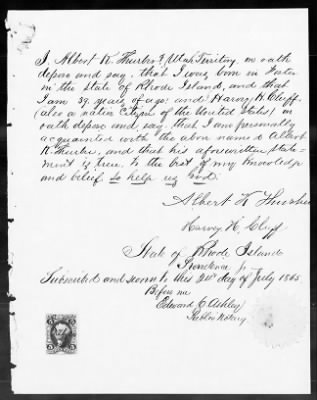 I, Albert K. Thurber of Utah Territory, on oath
depose and say, that I was born in Foster
in the State of Rhode Island, and that
I am 39 years of age and Harvey H. Cluff
(also a native Citizen of the United States) on
oath depose and say that I am personally
acquainted with the above named Albert
K. Thurber, and that his aforewritten state-
ment is true to the best of my knowledge
and belief so help us God.
Albert K Thurber
Harvey H. Cluff
State of Rhode Island
Providence
Subscribed and sworn to this day of July 1865
Before me
Edward C Ashley
Public Notary